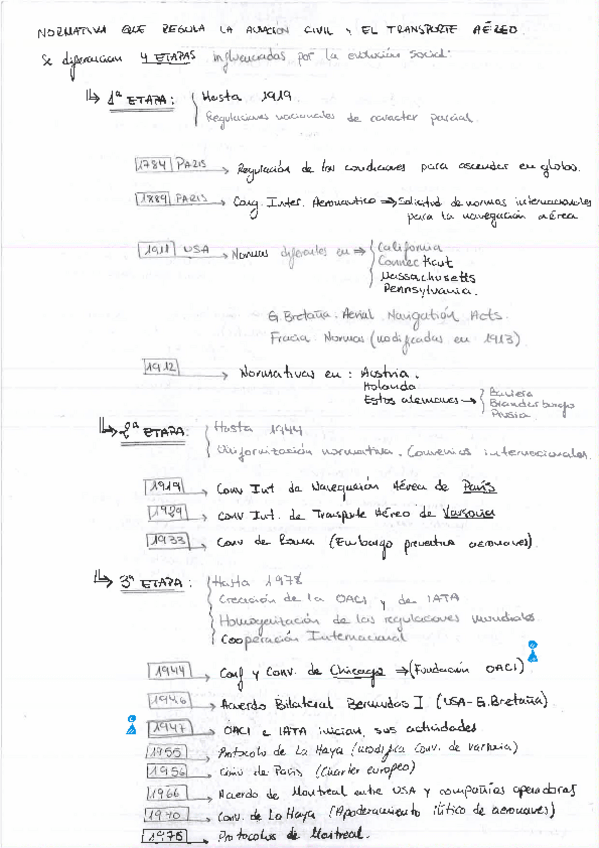 NORMATIVA QUE REGULA LA AVIACIÓN CIVIL Y EL TRANSPORTE AÉREO
Se diferencian 4 ETAPAS influenciadas por la evolución social:
1ª ETAPA: Hasta 1919
Regulaciones nacionales de caracter parcial.
1784 PARIS → Regulación de las condiciones para ascender en globo.
1889 PARIS → Cong. Inter. Aeronautico ⇒ Solicitud de normas internacionales
para la navegación aérea
1911 USA → Normas diferentes en ⇒ California
Connecticut
Massachusetts
Pennsylvania.
G. Bretaña: Aerial Navigation Acts.
Fracia: Normas (modificadas en 1913)
1912 → Normativas en: Austria.
Holanda
Estos alemanes → Baviera
Brandenburgo
Prusia
2ª ETAPA: Hasta 1944
Uniformización normativa. Convenios internacionales.
1919 → Conv Int de Navegación Aérea de Paris
1929 → Conv Int. de Transporte Aéreo de Varsovia
1933 → Conv de Roma (Embargo preventivo aeronaves)
3ª ETAPA: Hasta 1978
Creación de la OACI y de IATA
Homogenización de las regulaciones mundiales
Cooperación Internacional
1944 → Conf y Conv. de Chicago → (Fundación OACI)
1946 → Acuerdo Bilateral Bermudas I (USA-G.Bretaña)
1947 → OACI e IATA inician sus actividades
1955 → Protocolo de La Haya (modifica Conv. de Varsovia)
1956 → Conv de Paris (Charter europeo)
1966 → Acuerdo de Montreal entre USA y compañías operadoras
1970 → Conv. de La Haya (Apoderamiento ilítico de aeronaves)
1975 → Protocolos de Montreal.